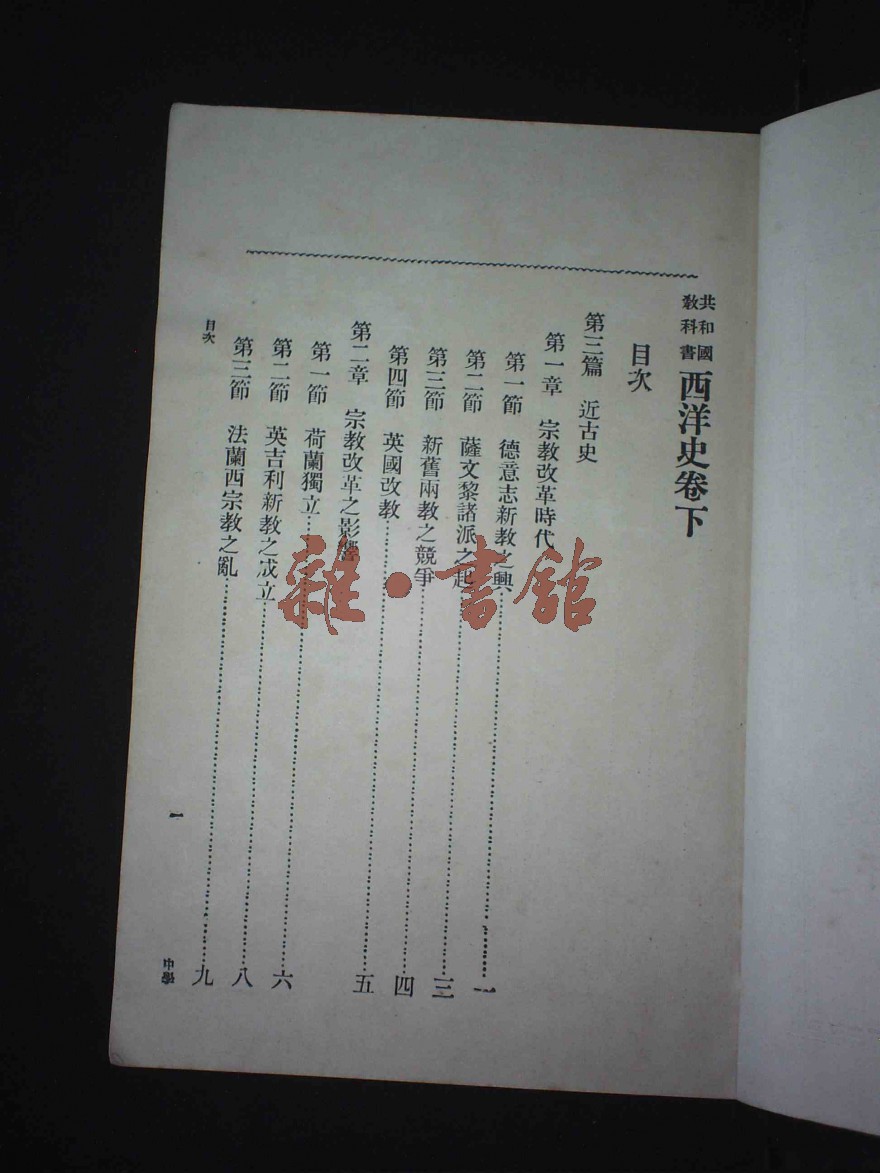 共和國
教科書
西洋史卷下
目次
第三篇　近古史
第一章　宗教改革時代
第一節　德意志新教之興……一
第二節　薩文黎諸派之起……三
第三節　新舊兩教之競爭……四
第四節　英國改教……五
第二章　宗教改革之影響
第一節　荷蘭獨立……六
第二節　英吉利新教之成立……八
第三節　法蘭西宗教之亂……九
目次
一
雜·書館